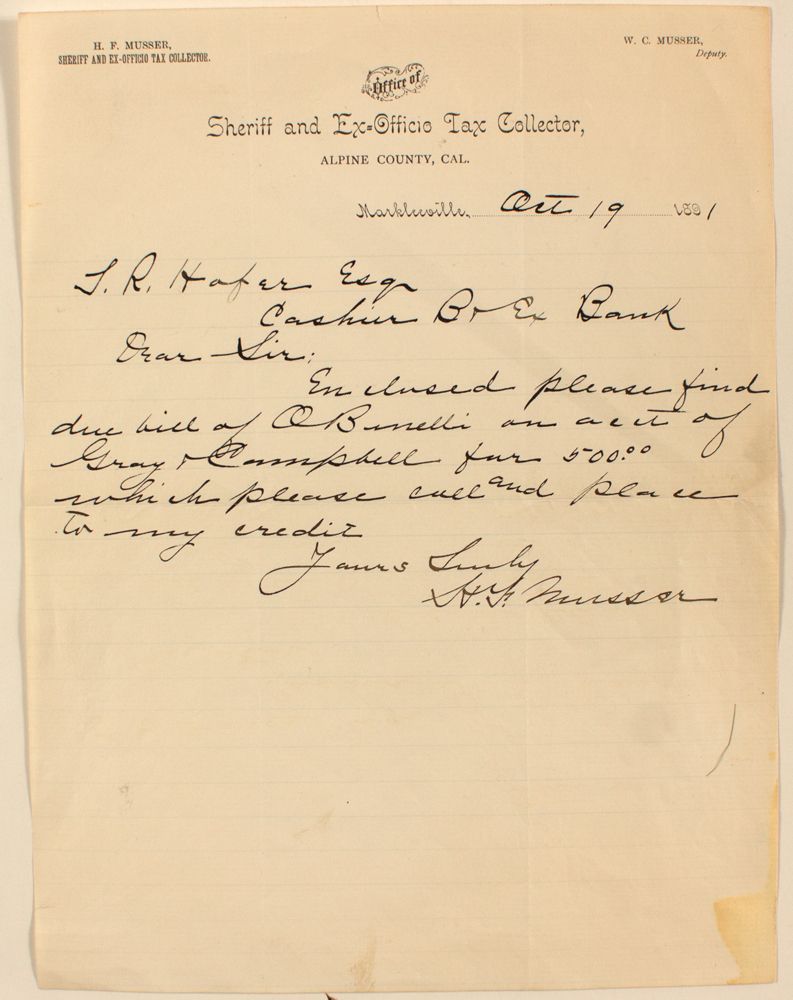 H. F. MUSSER,
SHERIFF AND EX-OFFICIO TAX COLLECTOR.
W. C. MUSSER,
Deputy.
Office of
Sheriff and Ex-Officio Tax Collector,
ALPINE COUNTY, CAL.
Markleeville, Oct 19 1891
T. R. Hofer Esqr
Cashier B & Ex Bank
Dear Sir:
Enclosed please find
due bill of O Bunelli on acct of
Gray & Campbell for 500.00
which please call and place
to my credit
Yours Truly
H. F. Musser